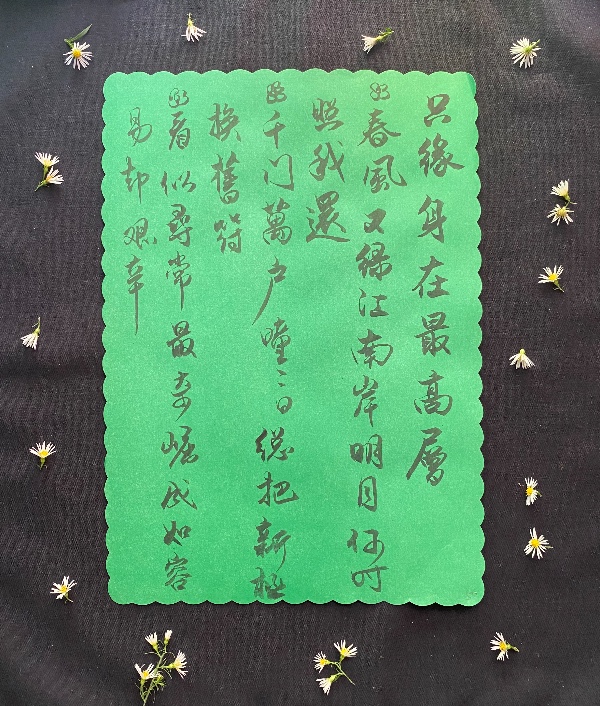 只緣身在最高層
春風又綠江南岸明月何时
照我還
千门萬户曈〻日總把新桃
換舊符
看似尋常最奇崛成如容
易却艰辛